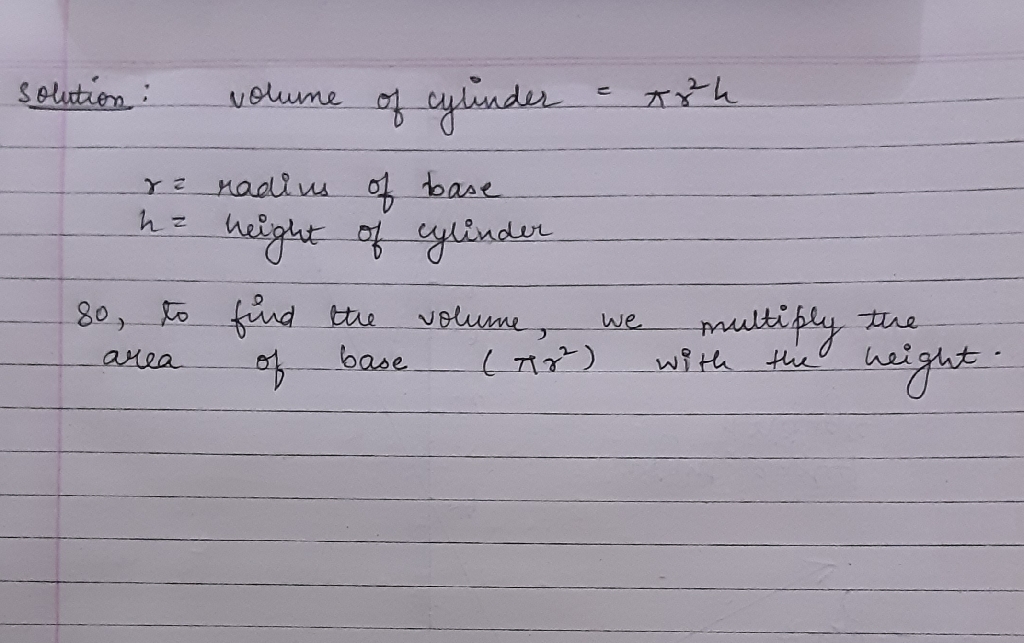 Solution: volume of cylinder = πr²h
r = radius of base
h = height of cylinder
So, to find the volume, we multiply the
area of base (πr²) with the height.